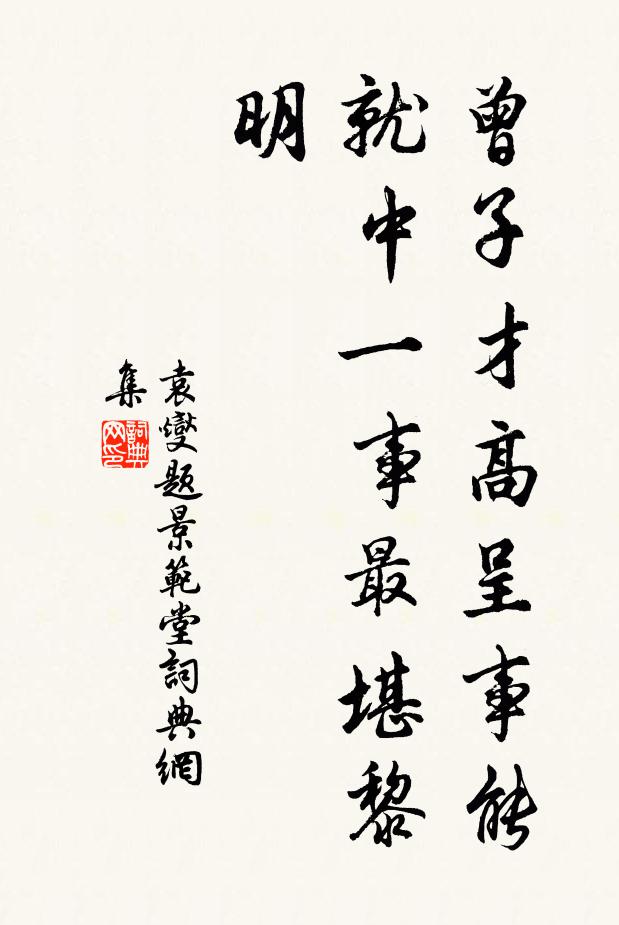 曾子才高呈事能
就中一事最堪黎
明
袁燮題景範堂詞典網
集
詞典
网印